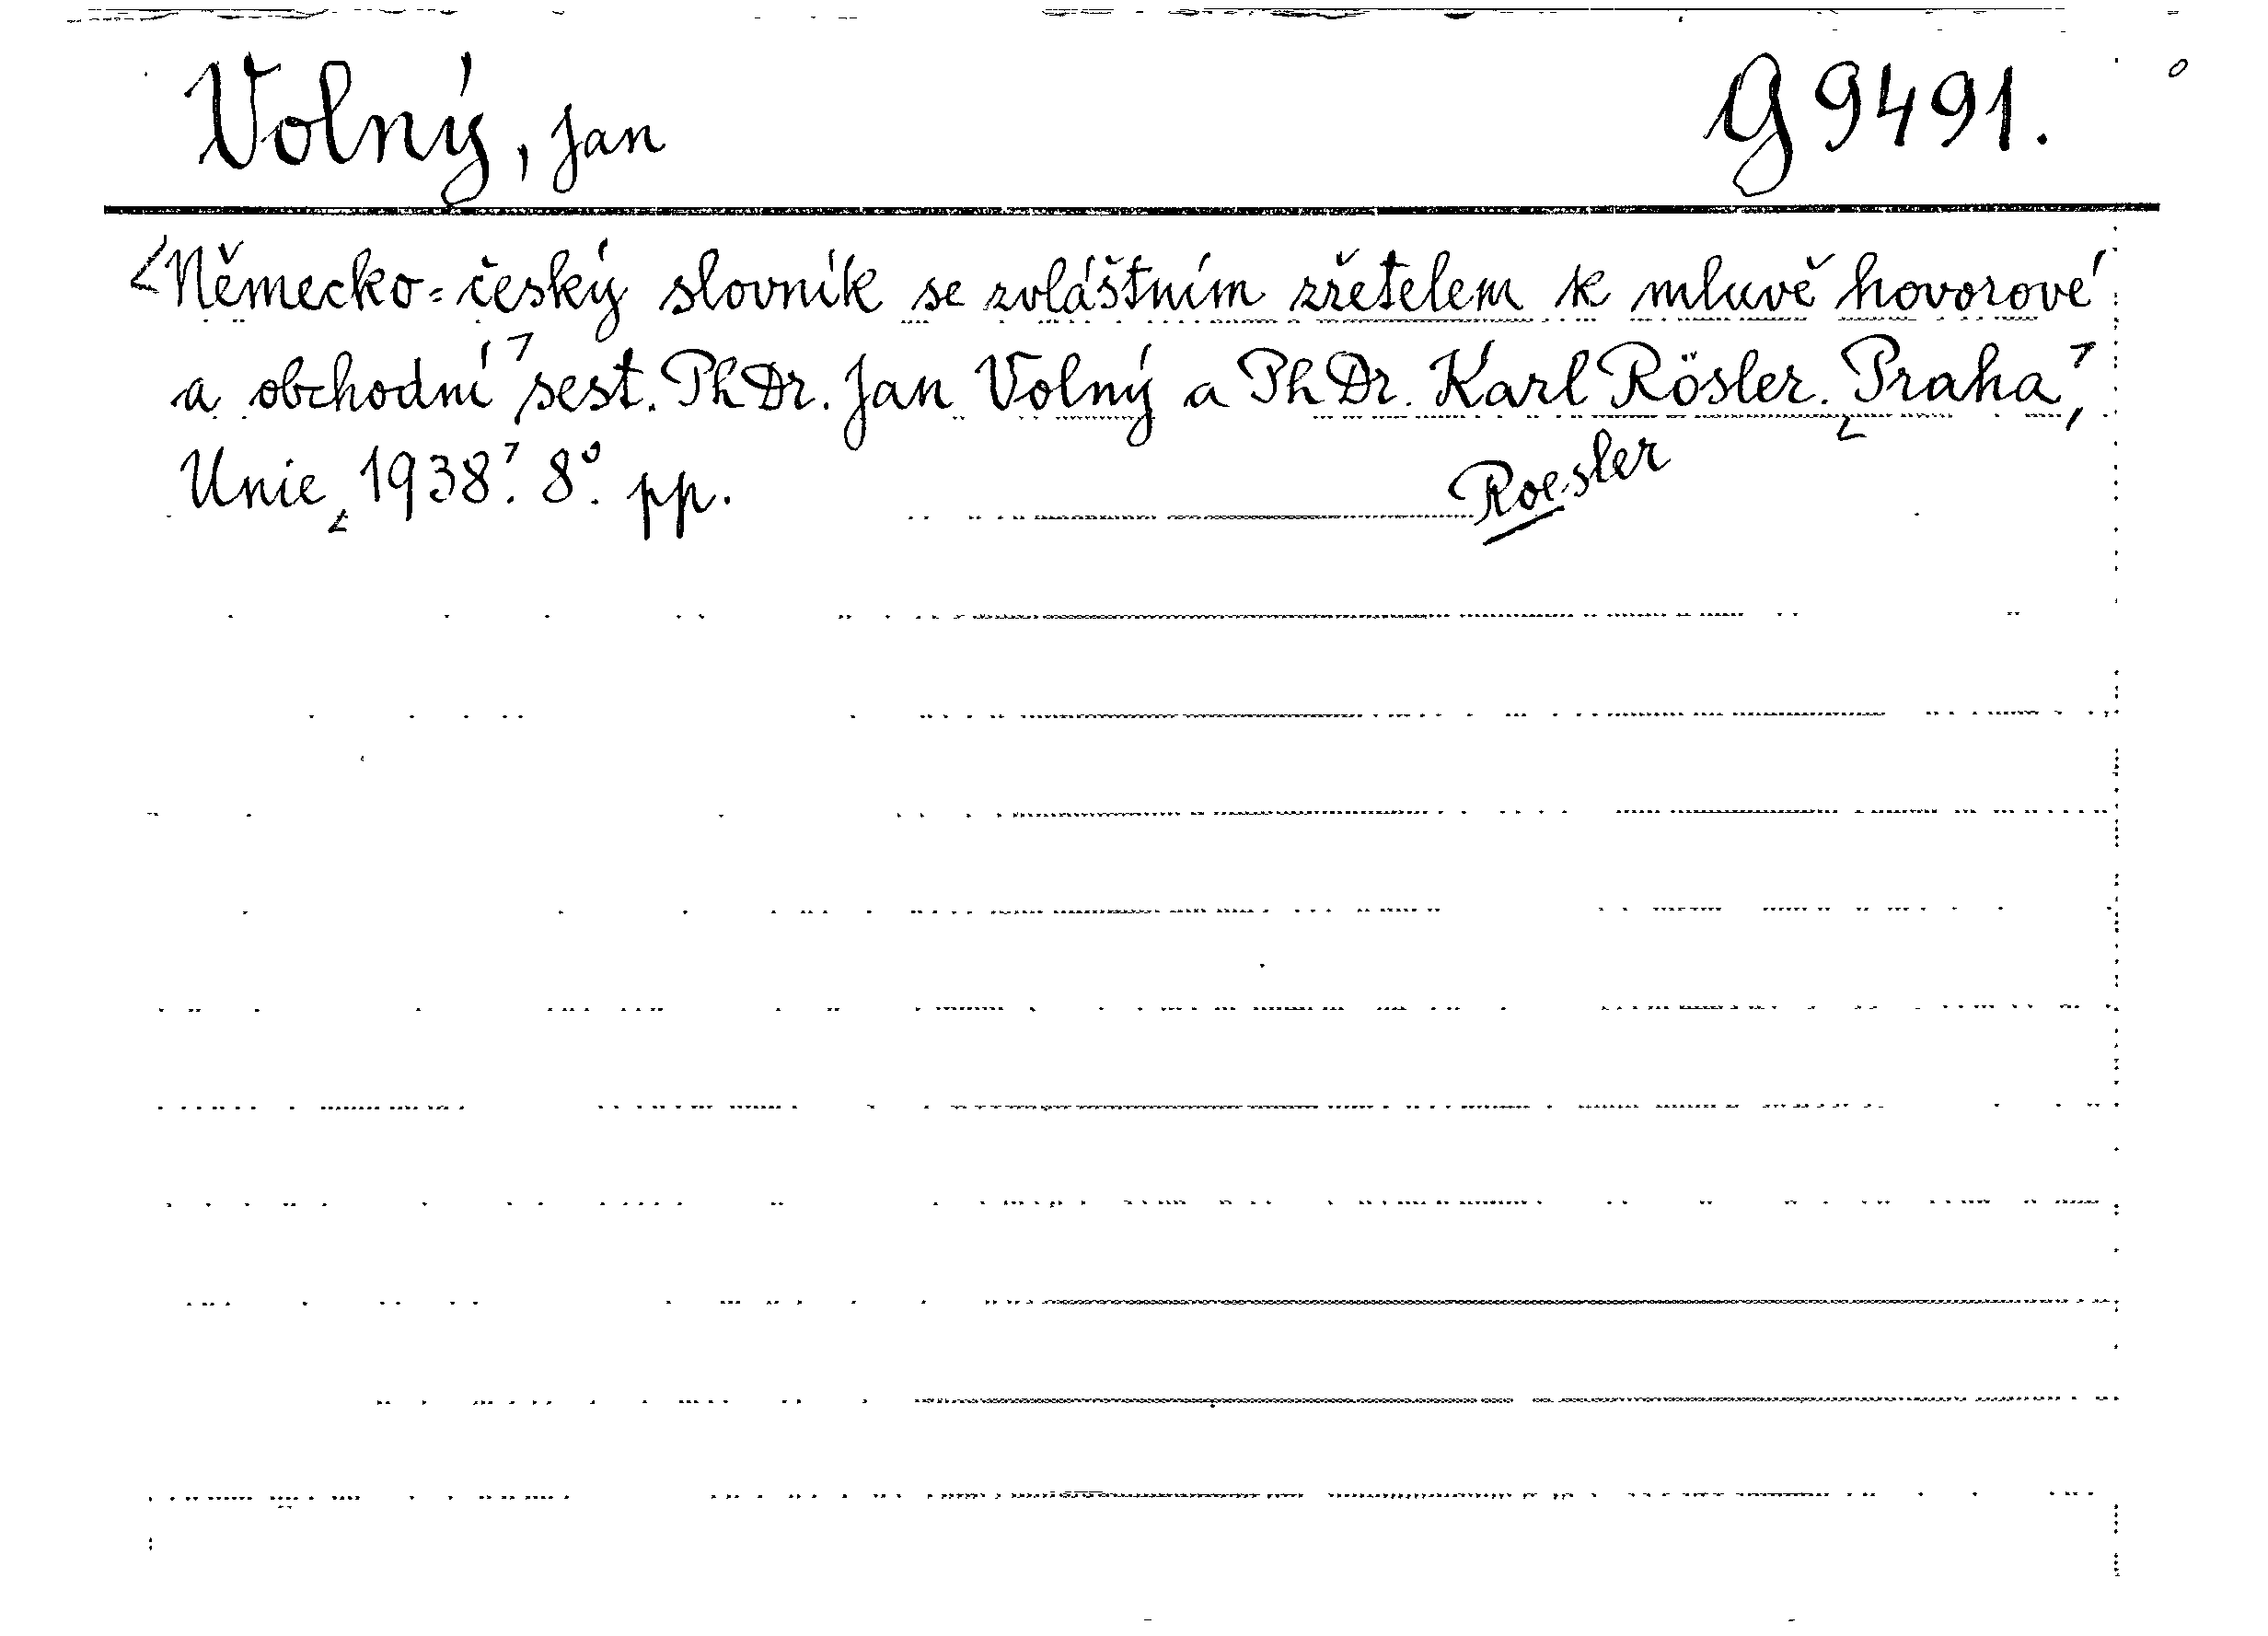 Volný, Jan G 9491.
Německo=český slovník se zvláštním zřetelem k mluvě hovorové
a obchodní sest. PhDr. Jan Volný a PhDr. Karl Rösler. Praha,
Unie, 1938. 8°. pp.
Roesler